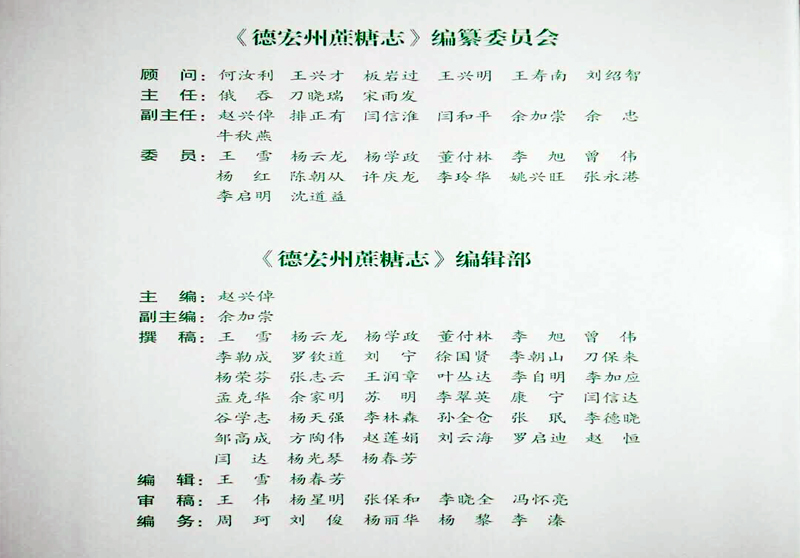 《德宏州蔗糖志》编纂委员会
顾 问：何汝利 王兴才 板岩过 王兴明 王寿南 刘绍智
主 任：俄 吞 刀晓瑞 宋雨发
副主任：赵兴倬 排正有 闫信淮 闫和平 余加崇 余 忠
牛秋燕
委 员：王 雪 杨云龙 杨学政 董付林 李 旭 曾 伟
杨 红 陈朝从 许庆龙 李玲华 姚兴旺 张永港
李启明 沈道益
《德宏州蔗糖志》编辑部
主 编：赵兴倬
副主编：余加崇
撰 稿：王 雪 杨云龙 杨学政 董付林 李 旭 曾 伟
李勒成 罗钦道 刘 宁 徐国贤 李朝山 刀保来
杨荣芬 张志云 王润章 叶丛达 李自明 李加应
孟克华 余家明 苏 明 李翠英 康 宁 闫信达
谷学志 杨天强 李林森 孙全仓 张 珉 李德晓
邹高成 方陶伟 赵莲娟 刘云海 罗启迪 赵 恒
闫 达 杨光琴 杨春芳
编 辑：王 雪 杨春芳
审 稿：王 伟 杨星明 张保和 李晓全 冯怀亮
编 务：周 珂 刘 俊 杨丽华 杨 黎 李 溱